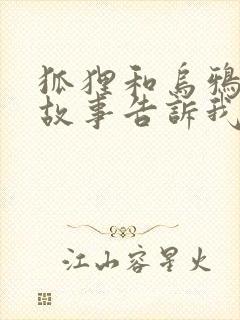 狐狸和烏鴉
故事告訴我
江山容星火